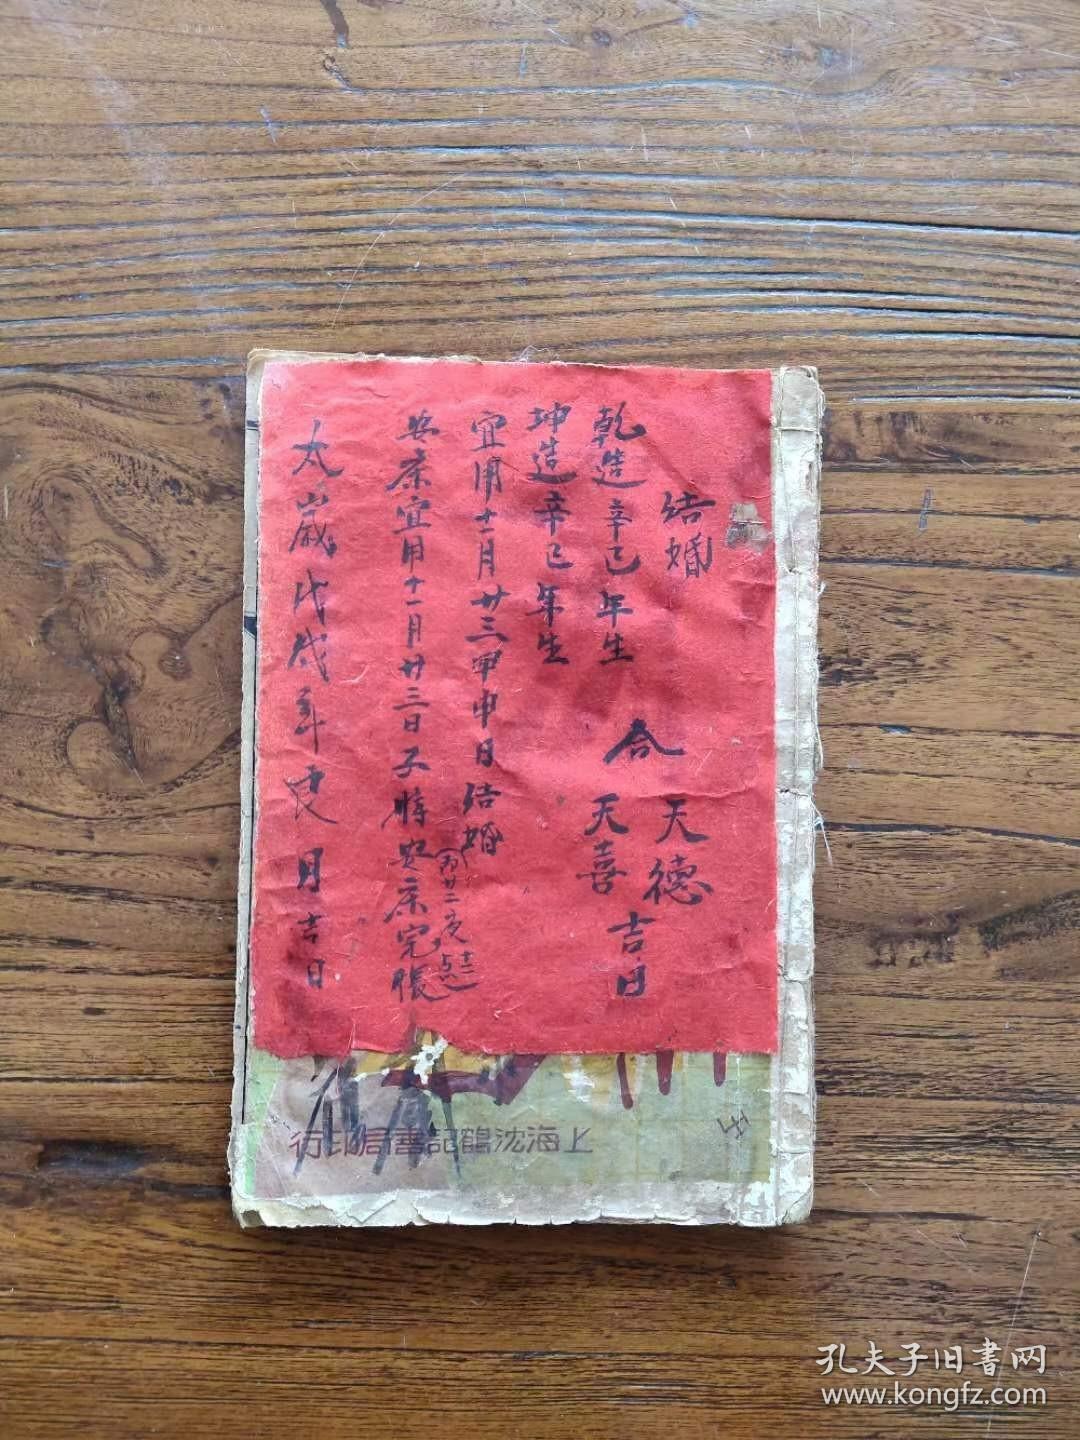 结婚
乾造辛巳年生
坤造辛巳年生
合
天德
天喜
吉日
宜用十二月廿三甲申日结婚
安床宜用十一月廿三日子時安床完帳
(即廿二夜十二点)
太歲戊戌年良月吉日
上海沈鶴記書局印行
孔夫子旧書网
www.kongfz.com